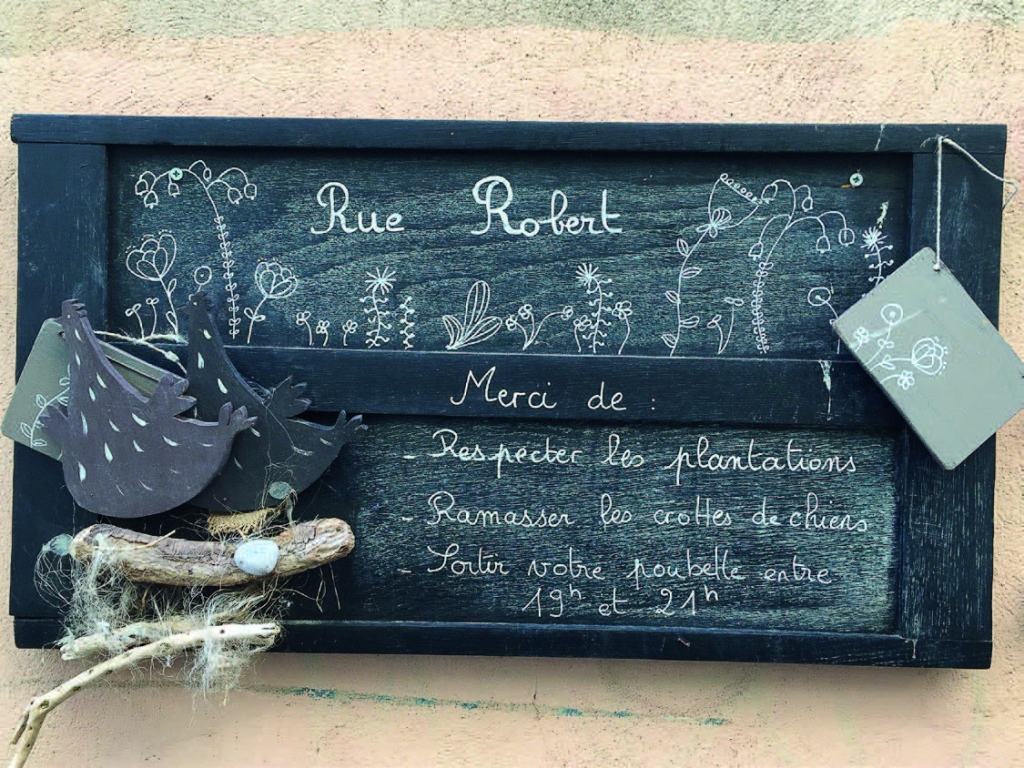 Rue Robert
Merci de :
- Respecter les plantations
- Ramasser les crottes de chiens
- Sortir votre poubelle entre
19h et 21h